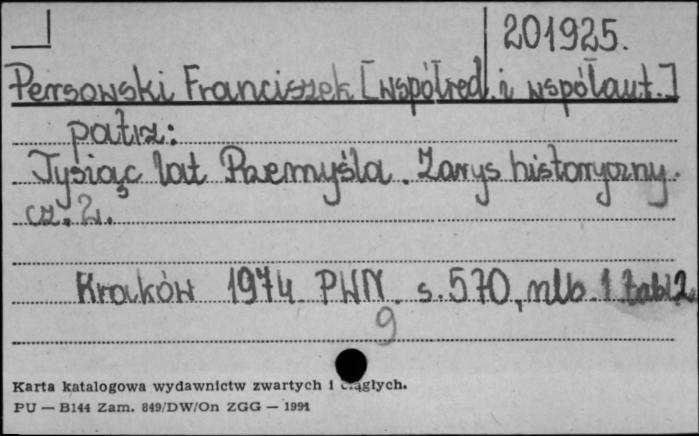 201925.
Persowski Franciszek [współred. i współaut.]
patrz:
Tysiąc lat Przemyśla. Zarys historyczny.
cz. 2.
Kraków 1974 PWN s. 570, nlb. 1 tabl 2
9
Karta katalogowa wydawnictw zwartych i ciągłych.
PU — B144 Zam. 849/DW/On ZGG — 1991